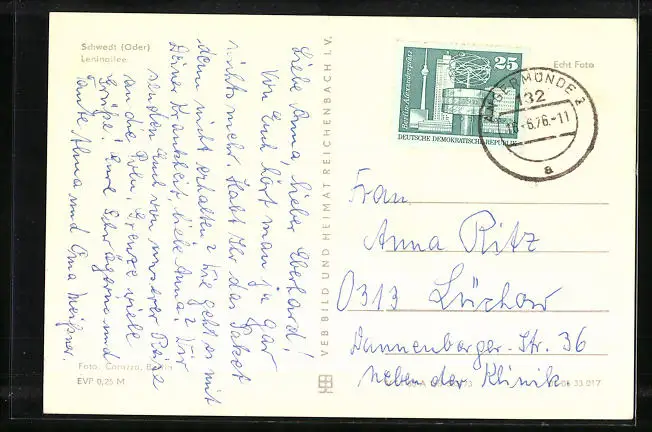 Schwedt (Oder)
Leninallee
Echt Foto
Liebe Anna, lieber Eberhard!
Von Euch hört man ja gar
nichts mehr. Habt Ihr das Paket
denn nicht erhalten? Wie geht es mit
Deiner Krankheit, liebe Anna? Wir
senden Euch von unserer Reise
an die Poln. Grenze viele
Grüße! Eure Schwägerin und
Tante Alma und Erna Meißner.
VEB BILD UND HEIMAT REICHENBACH I. V.
25
Berlin-Alexanderplatz
DEUTSCHE DEMOKRATISCHE REPUBLIK
ANGERMÜNDE 2
132
16.-6.76.-11
a
Frau
Anna Ritz
0313 Lüchow
Dannenberger-Str. 36
neben der Klinik
Foto: Berlin
EVP 0,25 M
33 017